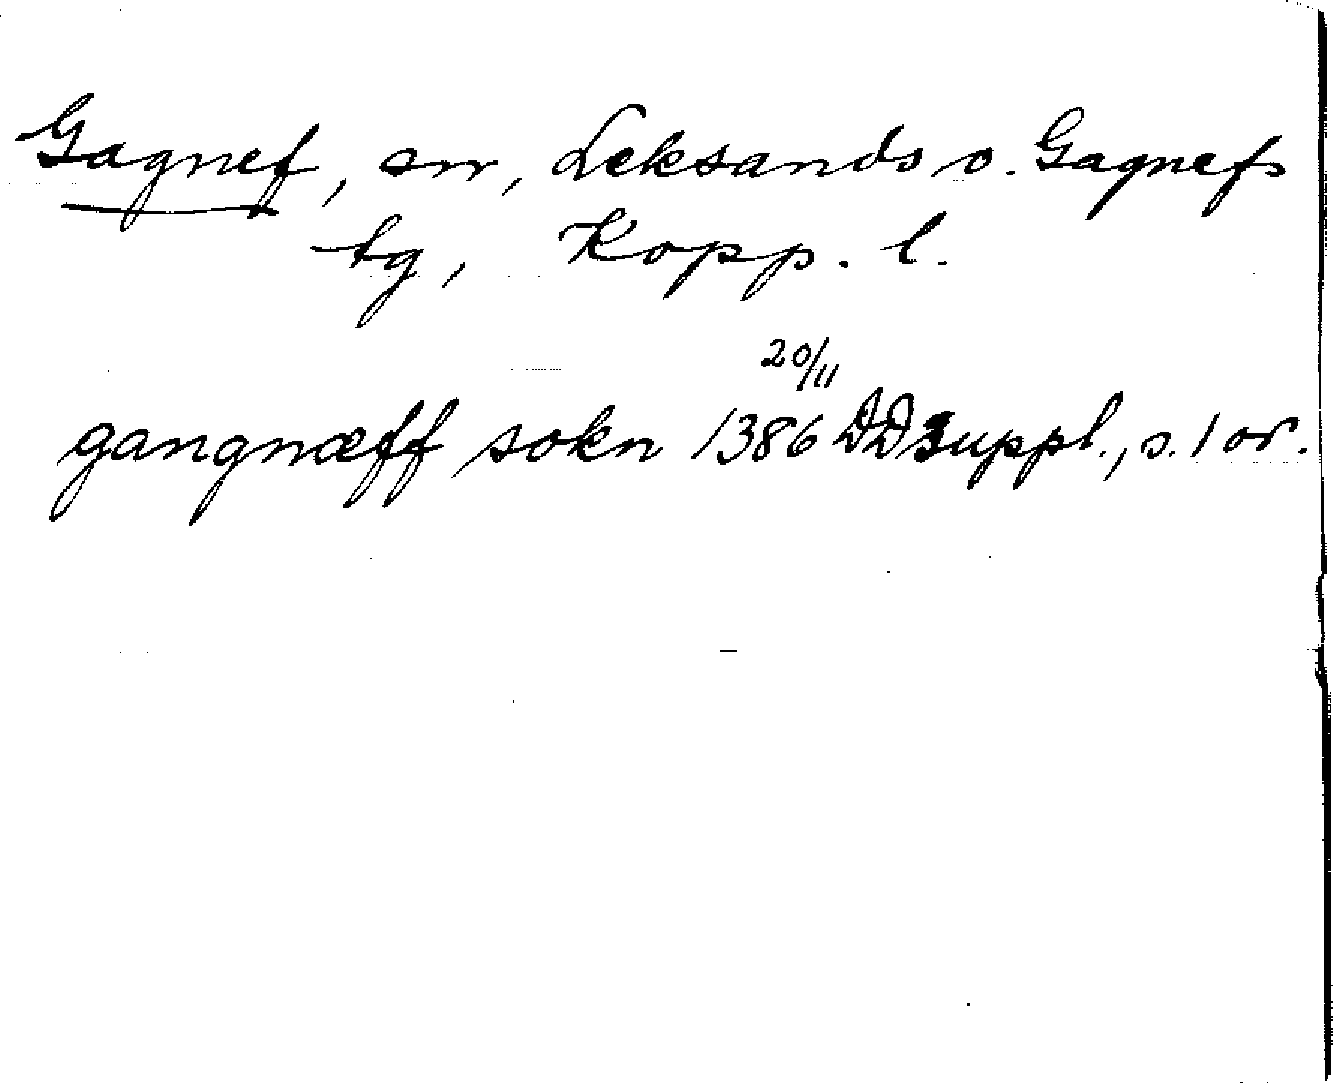 Gagnef, sn, Leksands o. Gagnefs
tg, Kopp. l.
20/11
gangnæff sokn 1386 DD Suppl., s. 1 or.